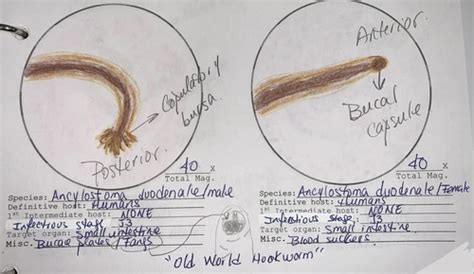 Anterior.
Copulatory
bursa.
Bucal
capsule
Posterior.
40 x
Total Mag.
40 x
Total Mag.
Species: Ancylostoma duodenale/male
Definitive host: Humans
1st Intermediate host: NONE
Infectious stage J3
Target organ: Small intestine
Misc. Bucae plates / Fangs
Species: Ancylostoma duodenale/Female
Definitive host: Humans
1st Intermediate host: NONE
Infectious stage J3
Target organ: Small intestine
Misc. Blood suckers.
"Old World Hookworm"